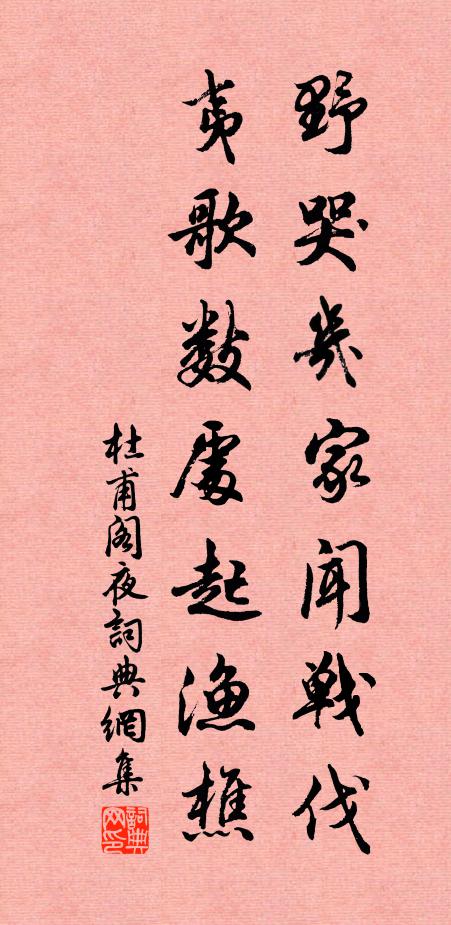 野哭幾家聞戰伐
夷歌數處起漁樵
杜甫閣夜詞典網集
詞典网印